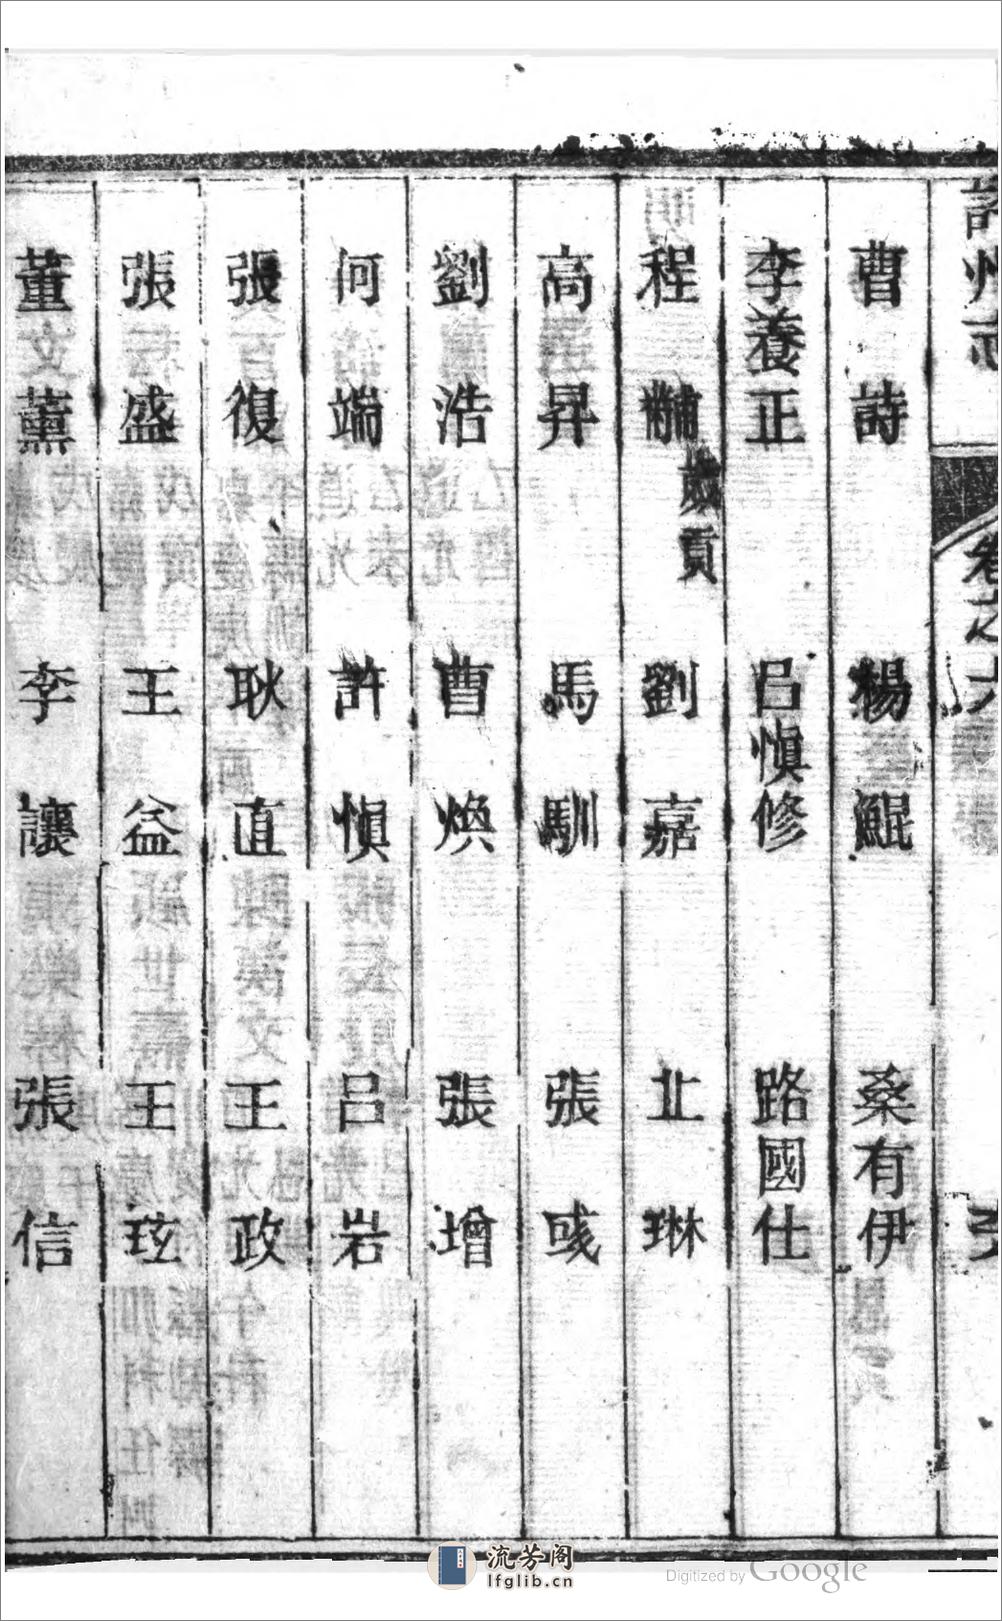 州志
卷之六
曹詩　楊鯤　桑有伊
李養正　呂愼修　路國仕
程黼歲貢　劉嘉　北琳
高昇　馬馴　張彧
劉浩　曹煥　張增
何端　許愼　呂岩
張復　耿直　王政
張盛　王益　王玹
董薰　李讓　張信
流芳阁
lfglib.cn
Digitized by Google